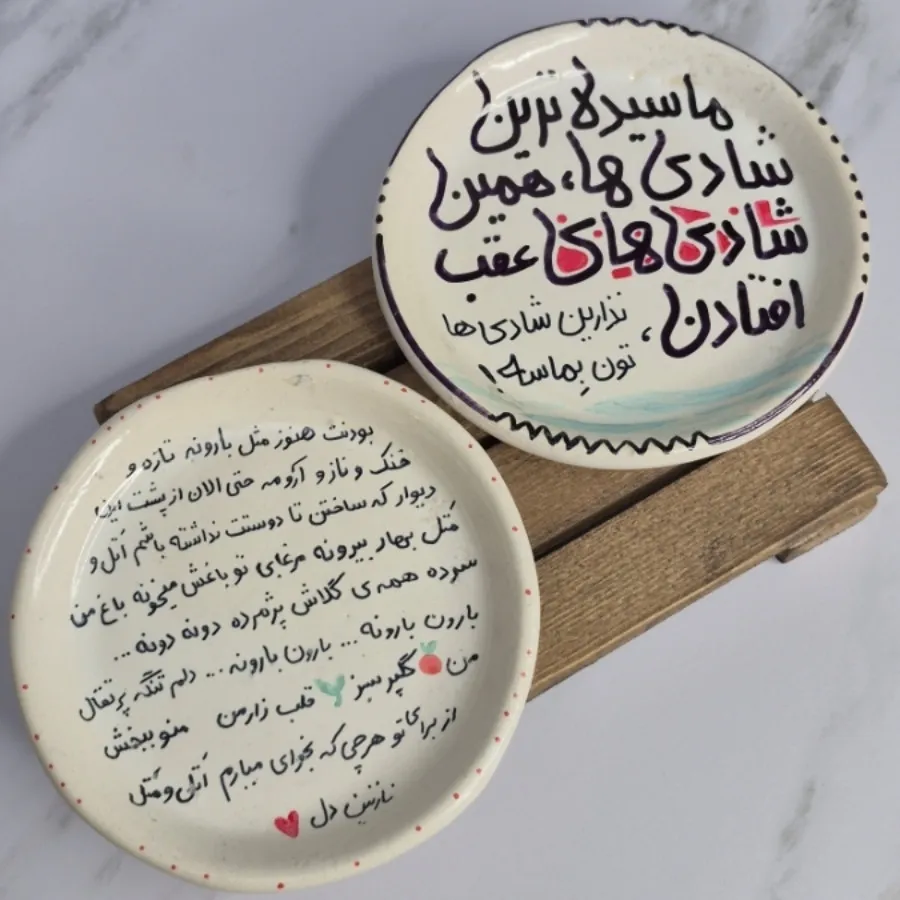 ماسیده ترین
شادی ها، همین
شادی های عقب
افتادن،
نذارین شادی ها
تون بِماسه!
بودنت هنوز مثل بارونه تازه و
خنک و ناز و آرومه حتی الان از پشت این
دیوار که ساختن تا دوستت نداشته باشم اَتَل و
مَتَل بهار بیرونه مرغابی تو باغش میخونه باغ من
سرده همه ی گلاش پژمرده دونه دونه ...
بارون بارونه ... بارون بارونه ... دلم تنگه پرتقال
من گلپر سبز قلب زار من منو ببخش
از برای تو هرچی که بخوای میارم اَتَل و مَتَل
نازنین دل